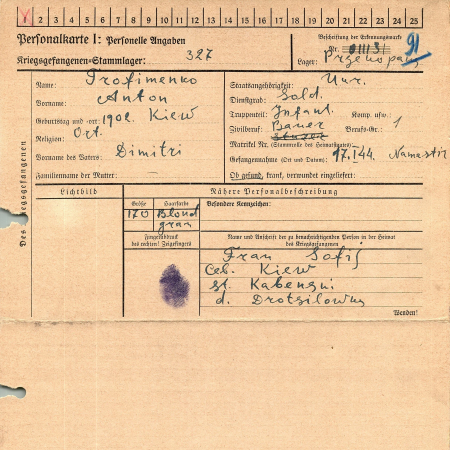 1 2 3 4 5 6 7 8 9 10 11 12 13 14 15 16 17 18 19 20 21 22 23 24 25
Personalkarte I: Personelle Angaben
Kriegsgefangenen-Stammlager: 327
Beschriftung der Erkennungsmarke
Nr.
91
Lager:
Des Kriegsgefangenen
Name: Trofimenko
Vorname: Anton
Geburtstag und -ort: 1902 Kiew
Religion: Ort.
Vorname des Vaters: Dimitri
Familienname der Mutter:
Staatsangehörigkeit: Ukr.
Dienstgrad: Sold.
Truppenteil: Infant. Komp. usw.:
Zivilberuf: Bauer Berufs-Gr.: 1
Matrikel Nr. (Stammrolle des Heimatstaates):
Gefangennahme (Ort und Datum): 17.I.44
Ob gesund, krank, verwundet eingeliefert:
Lichtbild
Nähere Personalbeschreibung
Größe Haarfarbe Besondere Kennzeichen:
170 Blond
grau
Fingerabdruck
des rechten Zeigefingers
Name und Anschrift der zu benachrichtigenden Person in der Heimat
des Kriegsgefangenen
Frau Sofij
Kiew
st.
d.
Wenden!